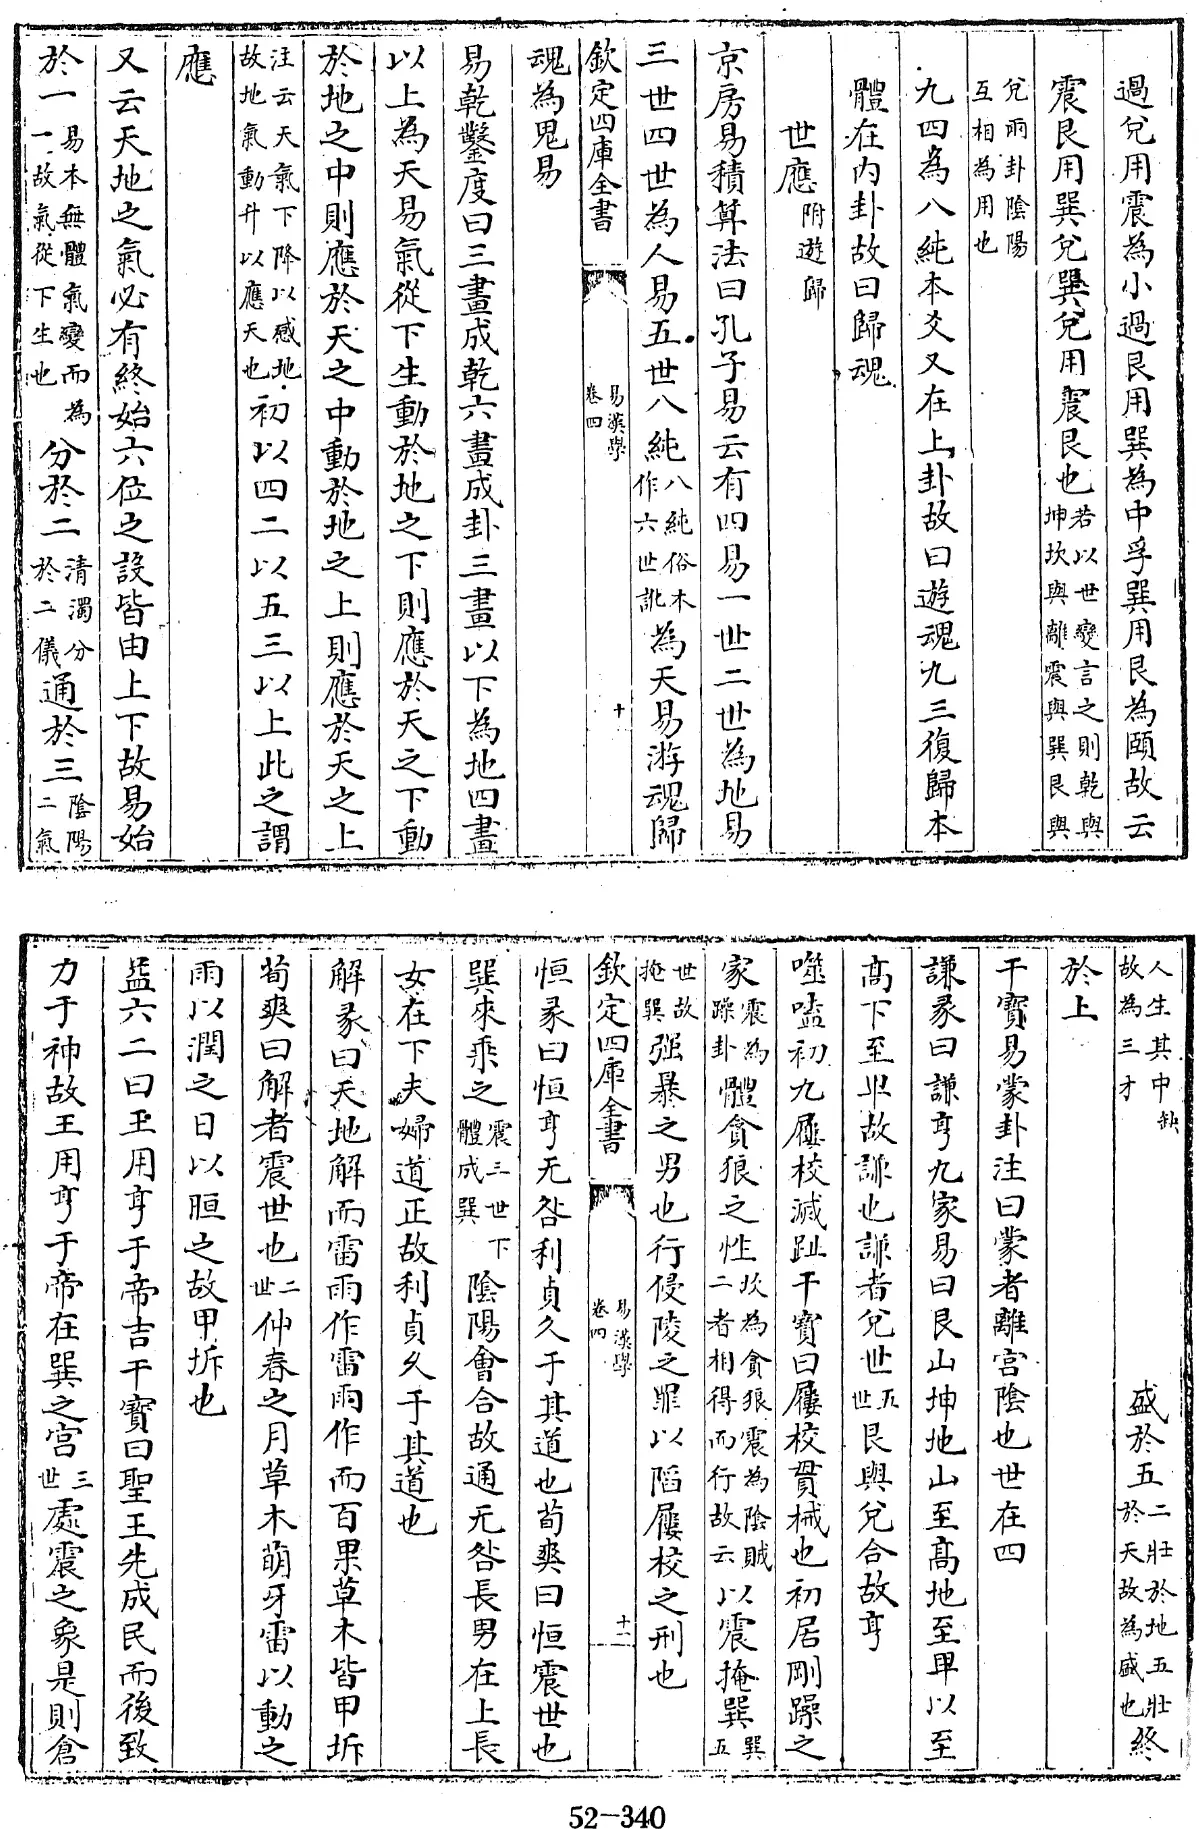 過兌用震為小過艮用巽為中孚巽用艮為頤故云
震艮用巽兌巽兌用震艮也若以世變言之則乾與坤坎與離震與巽艮與
兌兩卦陰陽互相為用也
九四為八純本爻又在上卦故曰遊魂九三復歸本
體在內卦故曰歸魂
世應附遊歸
京房易積算法曰孔子易云有四易一世二世為地易
三世四世為人易五世八純八純俗本作六世訛為天易游魂歸
欽定四庫全書
易漢學
卷四
十
魂為鬼易
易乾鑿度曰三畫成乾六畫成卦三畫以下為地四畫
以上為天易氣從下生動於地之下則應於天之下動
於地之中則應於天之中動於地之上則應於天之上
注云天氣下降以感地故地氣動升以應天也初以四二以五三以上此之謂
應
又云天地之氣必有終始六位之設皆由上下故易始
於一易本無體氣變而為一故氣從下生也分於二清濁分於二儀通於三陰陽二氣
人生其中故為三才缺盛於五二壯於地五壯於天故為盛也終
於上
干寶易蒙卦注曰蒙者離宮陰也世在四
謙彖曰謙亨九家易曰艮山坤地山至高地至卑以至
高下至卑故謙也謙者兌世五世艮與兌合故亨
噬嗑初九屨校滅趾干寶曰屨校貫械也初居剛躁之
家震為躁卦體貪狼之性坎為貪狼震為陰賊二者相得而行故云以震掩巽巽五
世故掩巽强暴之男也行侵陵之罪以陷屨校之刑也
欽定四庫全書
易漢學
卷四
十一
恒彖曰恒亨无咎利貞久于其道也荀爽曰恒震世也
巽來乘之震三世下體成巽陰陽會合故通无咎長男在上長
女在下夫婦道正故利貞久于其道也
解彖曰天地解而雷雨作雷雨作而百果草木皆甲坼
荀爽曰解者震世也二世仲春之月草木萌牙雷以動之
雨以潤之日以晅之故甲坼也
益六二曰王用亨于帝吉干寶曰聖王先成民而後致
力于神故王用亨于帝在巽之宮三世處震之象是則倉
52-340